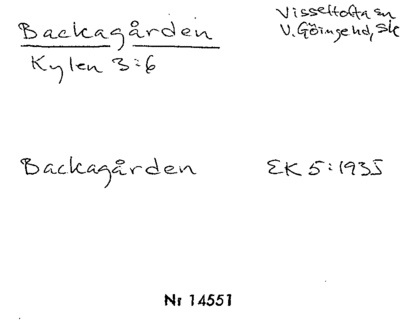 Backagården
Visseltofta sn
V. Göinge hd, Sk
Kylen 3:6
Backagården EK 5:1935
Nr 14551